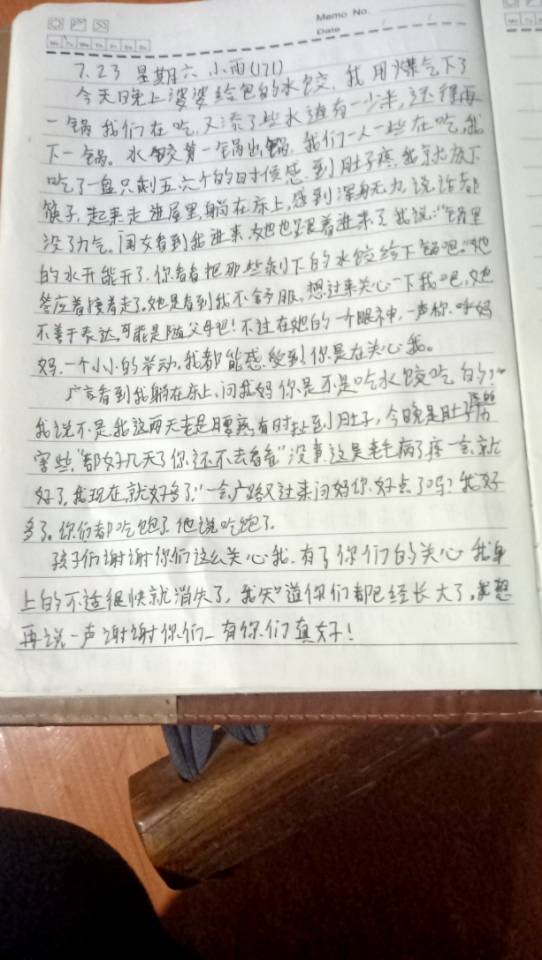 Memo No.
Date
Mo Tu We Th Fr Sa Su
7.23 星期六 小雨(171)
今天晚上婆婆给包的水饺,我用煤气下了
一锅我们在吃,又添了些水还有一少半,还得再
下一锅。水饺第一锅出锅,我们一人一些在吃,我
吃了一盘只剩五六个的时候感到肚子疼,我就放下
筷子,起来走进屋里躺在床上,感到浑身无力说话都
没了力气。闺女看到我进来,她也跟着进来了我说:“锅里
的水开能开了,你看着把那些剩下的水饺给下锅吧。”她
答应着接着走了,她是看到我不舒服,想过来关心一下我吧,她
不善于表达,可能是随父母吧!不过在她的一个眼神,一声称呼妈
妈,一个小小的举动,我都能感受到你是在关心我。
广言看到我躺在床上,问我妈你是不是吃水饺吃的?“
我说不是我这两天老是腰疼,有时扯到小肚子,今晚是肚子疼的厉
害些,“都好几天了你还不去看看”没事,这是老毛病了疼一会就
好了,我现在就好多了。”一会广路又过来问妈你好点了吗?我好
多了。你们都吃饱了他说吃饱了。
孩子们谢谢你们这么关心我,有了你们的关心我身
上的不适很快就消失了,我知道你们都已经长大了。我想
再说一声谢谢你们—有你们真好!